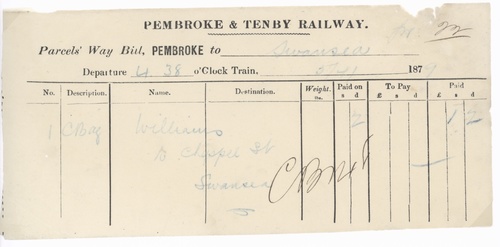 PEMBROKE & TENBY RAILWAY.
Parcels' Way Bill, PEMBROKE to Swansea
Departure 4 38 o'Clock Train. 187
No. Description. Name. Destination. Weight. lbs. Paid on s d To Pay £ s d Paid £ s d
1 C Bag Williams 2 1 2
Chapel St
Swansea